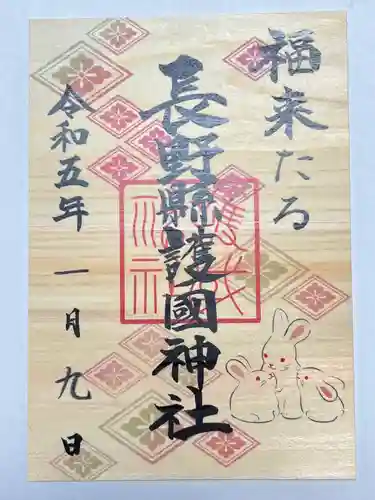 福来たる
長野縣護國神社
令和五年 一月九日